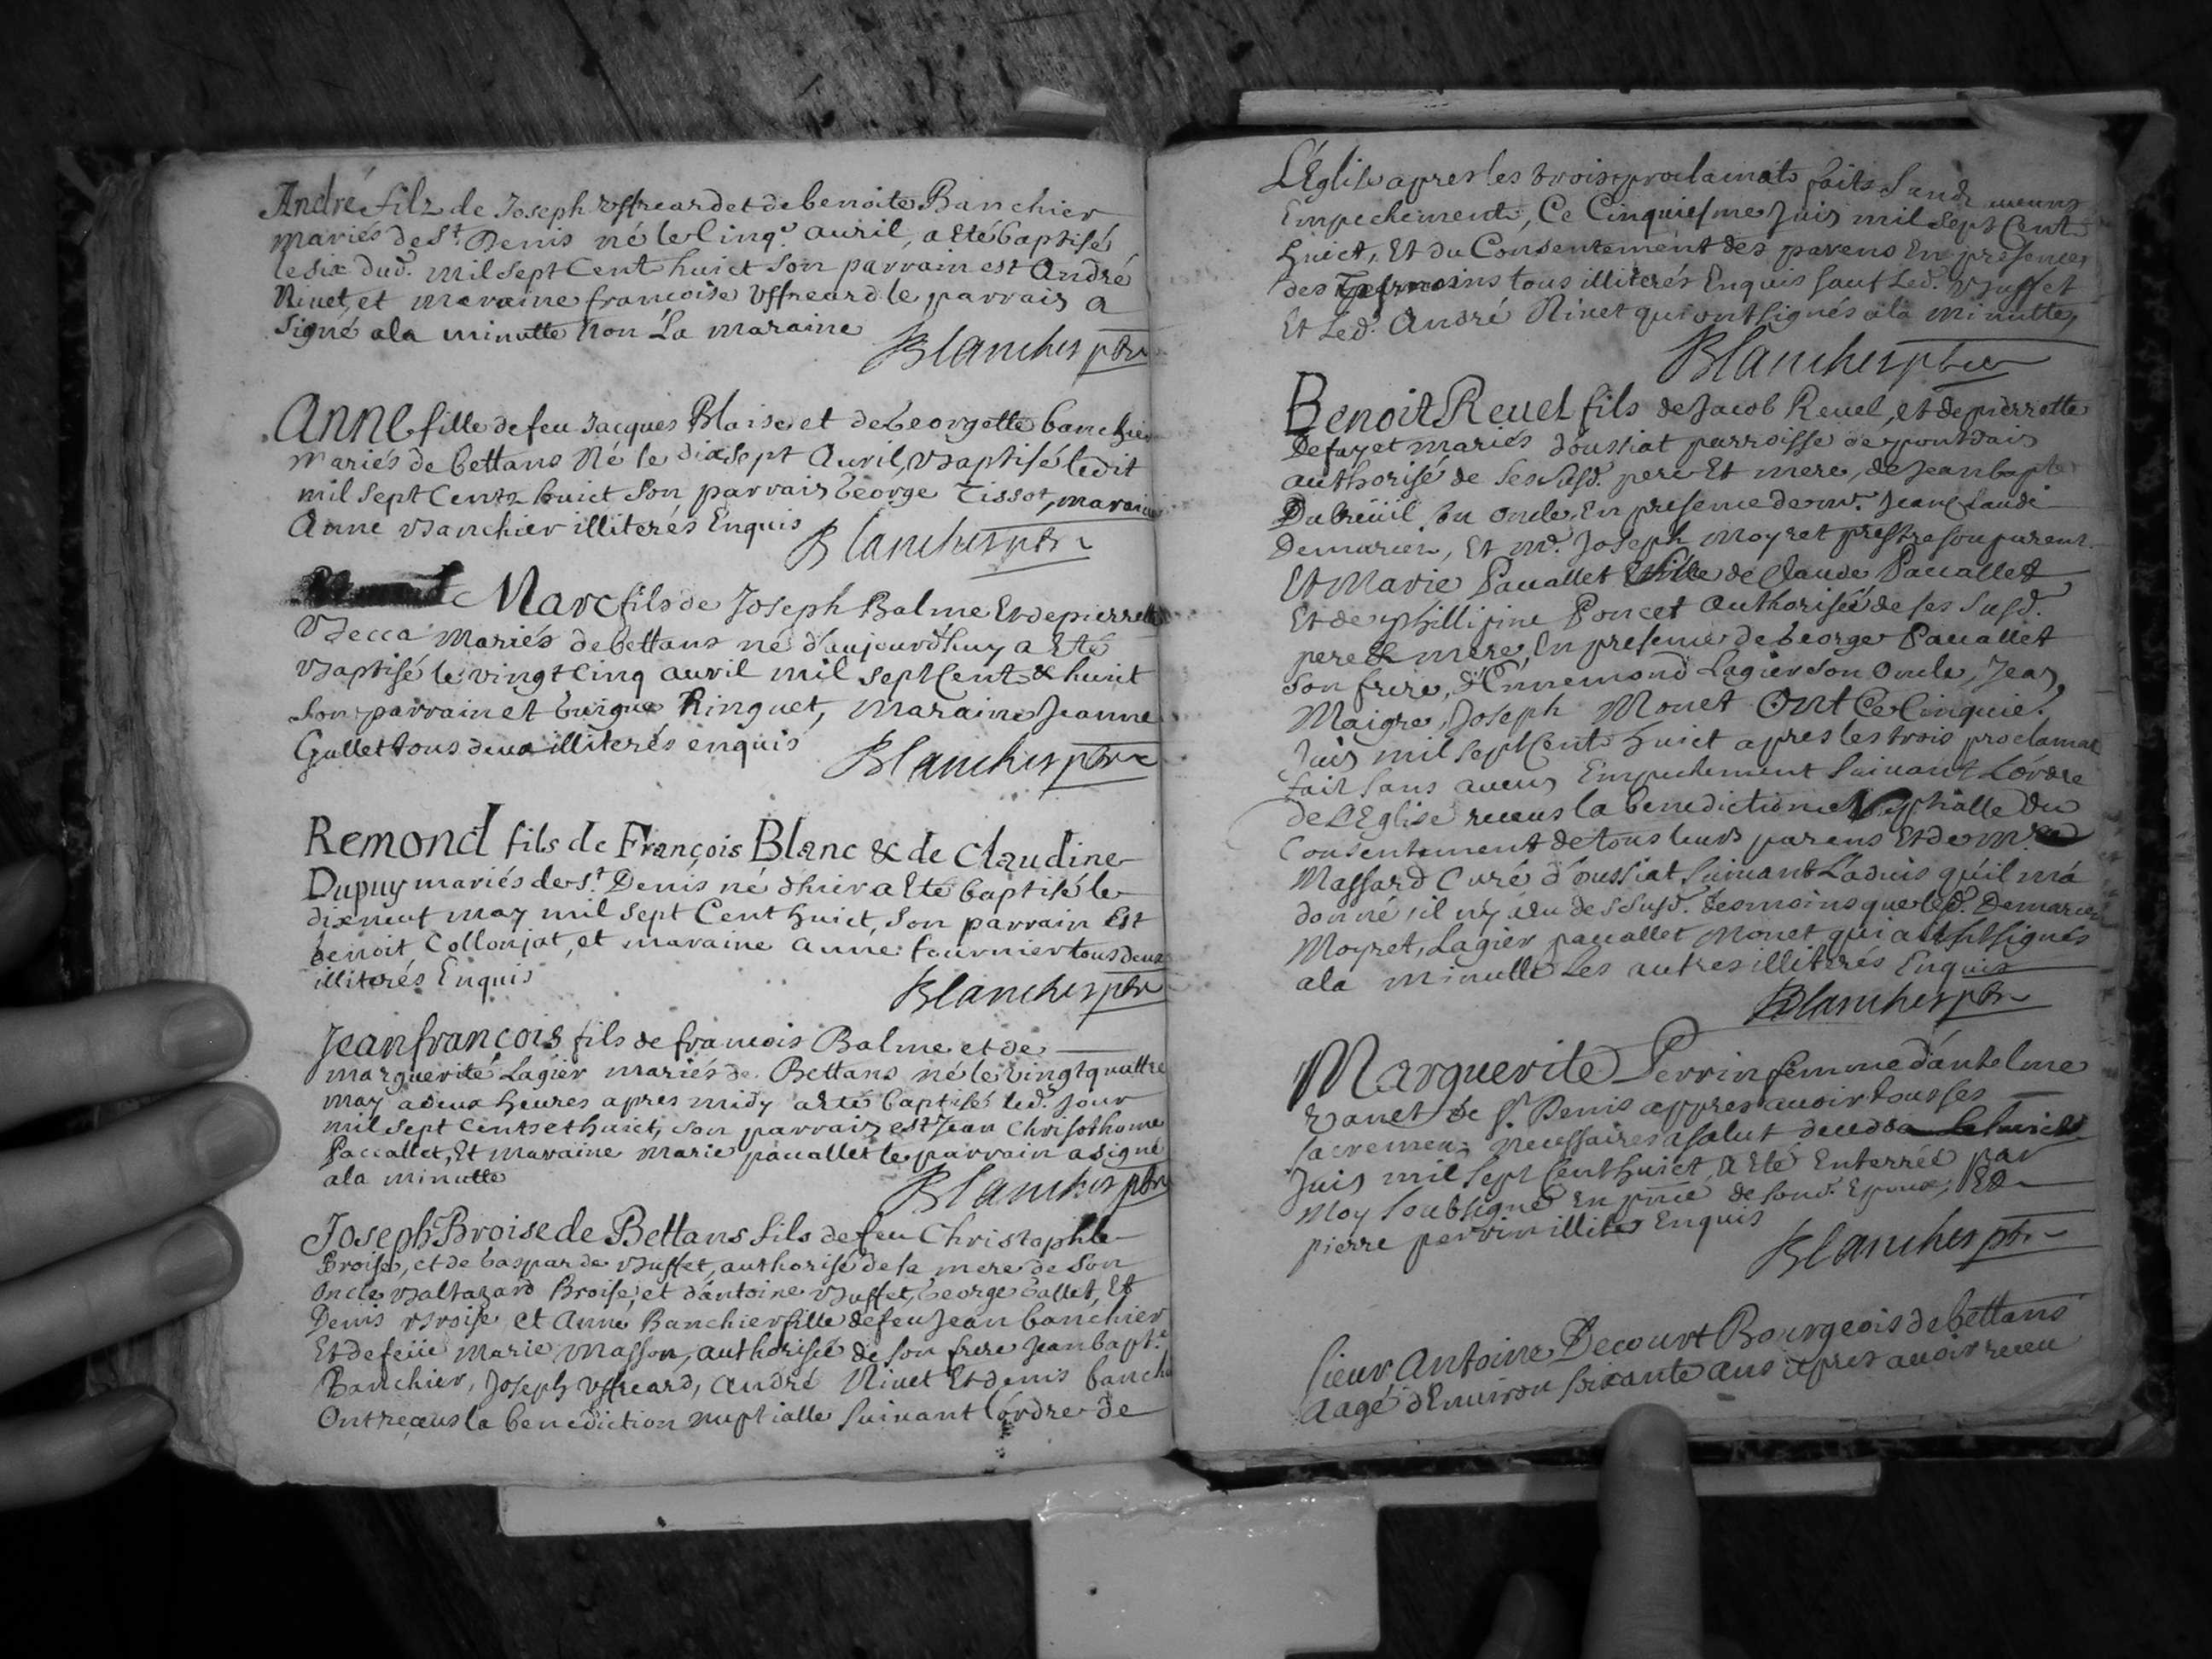 André filz de Joseph Uffreard et de benoite Banchier
mariés de St. Denis né le Cinq.e auril, a Eté baptisé
le six dud. mil sept Cent huict son parrain est André
Niuet, et maraine francoise Uffreard le parrain a
signé a la minutte non La maraine
Blanchet ptre
Anne fille de feu Jacques Blaise et de Georgette banchier
mariés de bettans Né le dixsept Auril, Baptisé ledit
mil sept Centz huict son parrain George Tissot, maraine
Anne Banchier illiterés Enquis
Blanchet ptre
Marc fils de Joseph Balme Et de pierrette
Becca mariés de bettans né d'aujourd'huy a Eté
Baptisé le vingt Cinq auril mil sept Cent & huict
son parrain et Guigue Ringuet, maraine Jeanne
Gallet tous deux illiterés enquis
Blanchet ptre
Remond fils de François Blanc & de Claudine
Dupuy mariés de St. Denis né dhier a Eté baptisé le
dixneuf may mil sept Cent huict, son parrain Est
benoit Collonjat, et maraine anne fournier tous deux
illiterés Enquis
Blanchet ptre
Jean françois fils de francois Balme et de
marguerite Lagier mariés de Bettans né le vingt quattre
may a deux heures apres midy a eté baptisé led. Jour
mil sept Cents et huict, son parrain est Jean Chrisothome
Paccallet, Et maraine marie paccallet le parrain a signé
a la minutte
Blanchet ptre
Joseph Broise de Bettans fils de feu Christophle
Broise, et de Gasparde Buffet, authorisé de sa mere de son
oncle Baltazard Broise, et d'antoine Buffet, George Gallet, Et
Denis Broise et Anne Banchier fille de feu Jean banchier
Et de feüe marie masson, authorisée de son frere Jean bapt.e
Banchier, Joseph Uffreard, André Niuet Et denis banch
Ont receus la benediction nuptialle suiuant l'ordre de
L'Eglise apres les trois proclamats faits sans aucuns
Empechement, Ce Cinquiesme Juin mil sept Cent
huict, Et du Consentement des parens En presence
des Tesmoins tous illiterés Enquis sauf Led. Buffet
Et Led. André Niuet qui ont signés a la minutte,
Blanchet ptre
Benoit Reuel fils de Jacob Reuel, et de pierrette
Defay et mariés d'oussiat parroisse de pontdain
authorisé de ses susd. pere Et mere, de Jean bapte
Dubreüil son oncle, En presence de mr. Jean Claude
Demarien, Et mr. Joseph moyret prestre son parent
Et Marie Paccallet fille de Claude Paccallet
Et de phillipine Poncet authorisée de ses susd.
pere & mere, En presence de George Paccallet
son frere, d'Ennemond Lagier son oncle, Jean
Maigre, Joseph Monet Ont Ce Cinquie.
Juin mil sept Cent huict apres les trois proclamat
fait sans aucun Empechement suiuant L'ordre
de L'Eglise receus la benediction Nuptialle du
Consentement de tous leurs parens Et de mr.
Massard Curé d'oussiat suiuant L'aduis qu'il m'a
donné, il n'y a eu de susd. tesmoins que led. Demarien
Moyret, Lagier paccallet Monet qui signés
a la minutte Les autres illiterés Enquis
Blanchet ptre
Marguerite Perrin femme d'antelme
de St. Denis appres auoir tous ses
sacremen necessaires a salut decedda Le huict
Juin mil sept Cent huict, a Eté Enterrée par
Moy soubsigné En pnce de sond. Epoux, Et
pierre perrin illites Enquis
Blanchet ptre
Sieur Antoine Decourt Bourgeois de bettans
aagé d'Enuiron soixante ans apres auoir receu